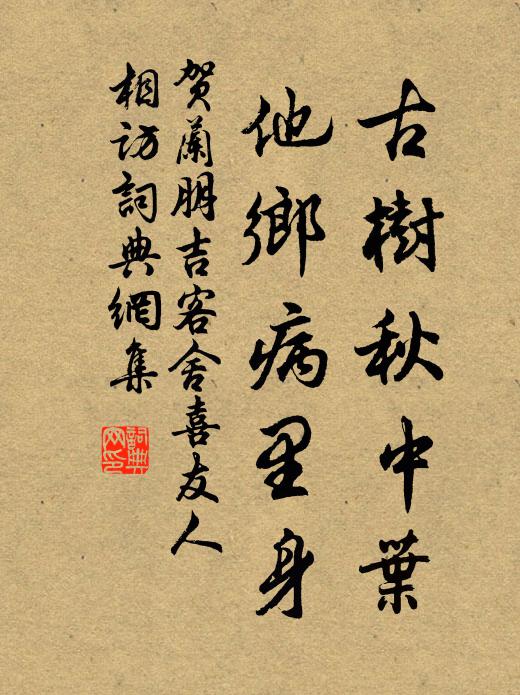 古樹秋中葉
他鄉病里身
贺蘭朋吉客舍喜友人
相访詞典網集
詞典
网印